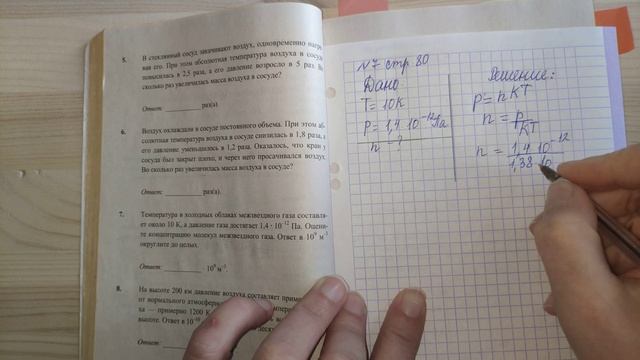 5. В стеклянный сосуд закачивают воздух, одновременно нагре-
вая его. При этом абсолютная температура воздуха в сосуде
повысилась в 2,5 раза, а его давление возросло в 5 раз. Во
сколько раз увеличилась масса воздуха в сосуде?
Ответ: раз(а).
6. Воздух охлаждали в сосуде постоянного объема. При этом аб-
солютная температура воздуха в сосуде снизилась в 1,8 раза, а
его давление уменьшилось в 1,2 раза. Оказалось, что кран у
сосуда был закрыт плохо, и через него просачивался воздух.
Во сколько раз увеличилась масса воздуха в сосуде?
Ответ: раз(а).
7. Температура в холодных облаках межзвездного газа составля-
ет около 10 К, а давление газа достигает 1,4 · 10⁻¹² Па. Оцени-
те концентрацию молекул межзвездного газа. Ответ в 10⁹ м⁻³
округлите до целых.
Ответ: 10⁹ м⁻³.
8. На высоте 200 км давление воздуха составляет прим
от нормального атмосфер
ха — примерно 1200 К
высоте. Ответ в 10
Ответ:
N7 стр 80
Дано
T = 10К
P = 1,4 · 10⁻¹² Па
n - ?
Решение:
P = nKT
n = P/KT
n = 1,4 · 10⁻¹²
1,38 · 10